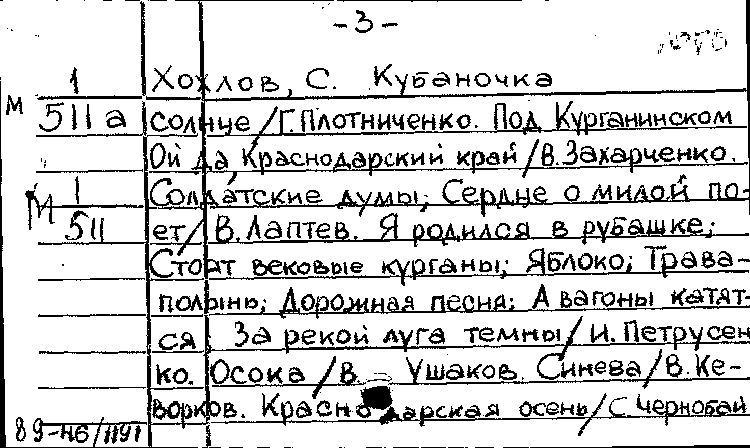 -3-
1 Хохлов, С. Кубаночка
М 511а солнце/Г.Плотниченко. Под Курганинском
Ой да, Краснодарский край/В.Захарченко.
М 1 Солдатские думы; Сердце о милой по-
511 ет/В.Лаптев. Я родился в рубашке;
Стоят вековые курганы; Яблоко; Трава-
полынь; Дорожная песня; А вагоны катят-
ся; За рекой луга темны/И.Петрусен
ко. Осока/В. Ушаков. Синева/В.Ке-
ворков. Краснодарская осень/С.Чернобай
89-НБ/1191